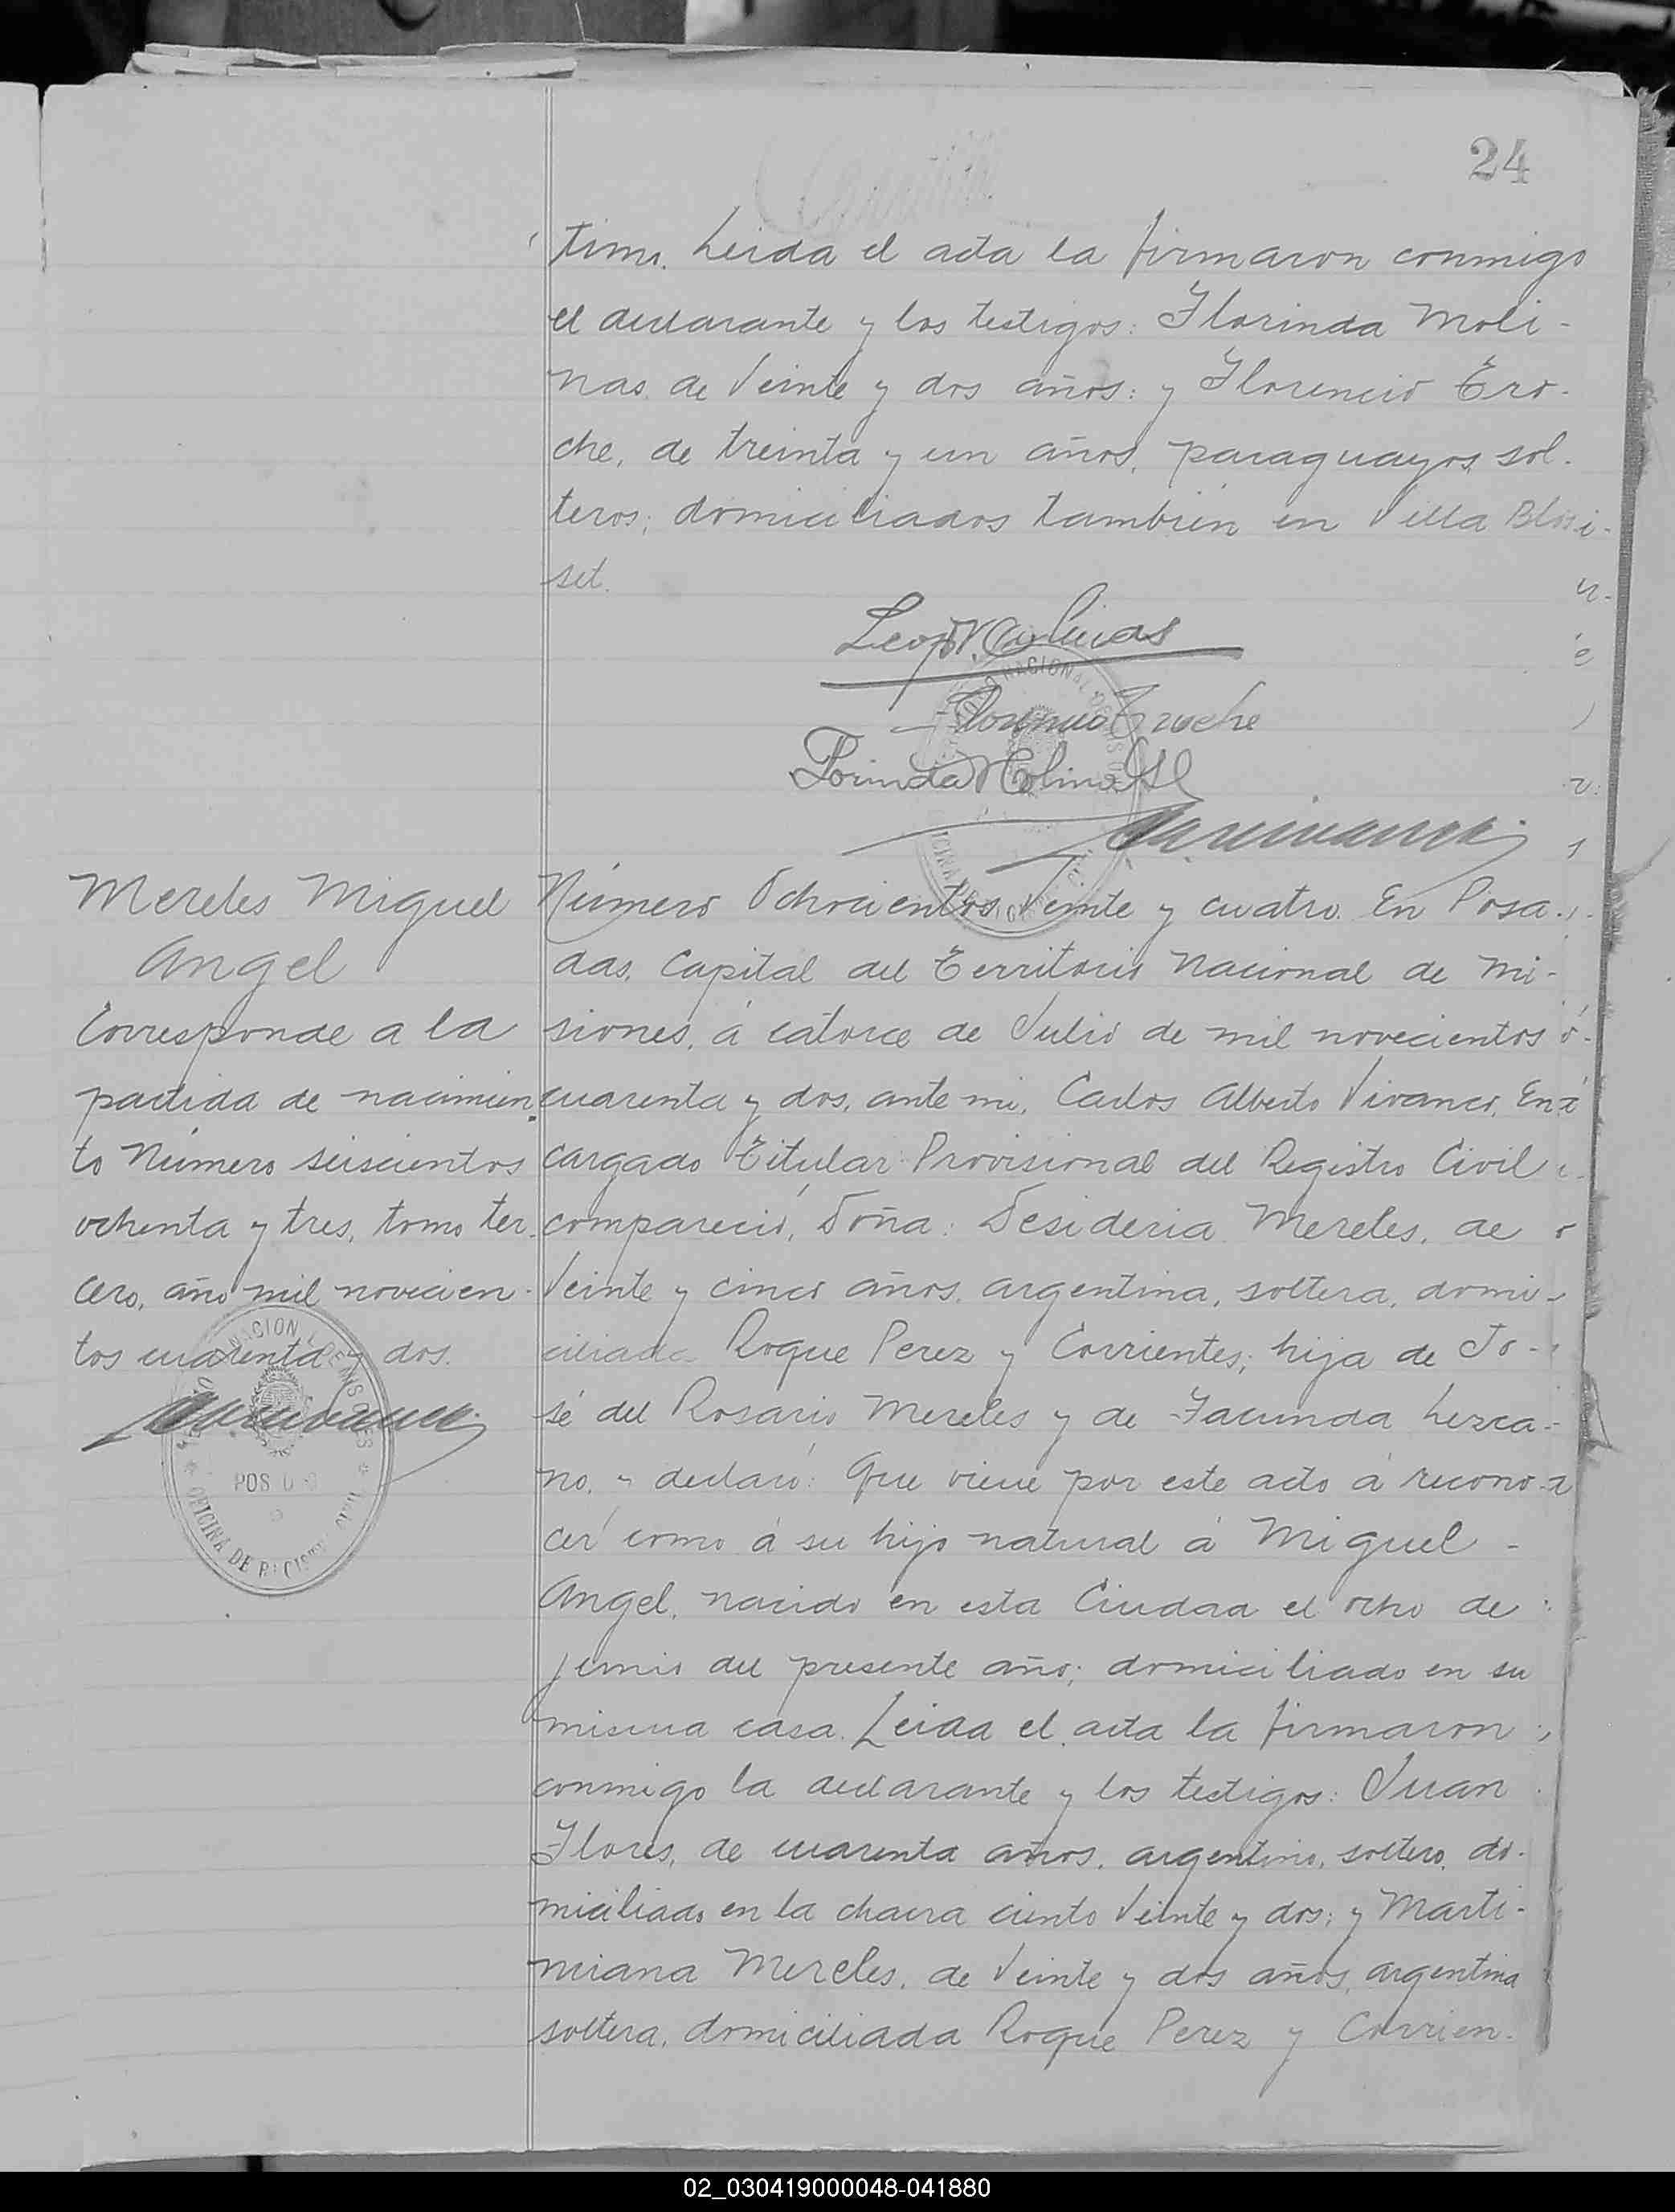 24
timo. Leida el acta la firmaron conmigo
el declarante y los testigos: Florinda Moli-
nas, de Veinte y dos años: y Florencio Ero-
che, de treinta y un años, paraguayos, sol-
teros; domiciliados también en Villa Blosi-
set.
Florinda Molinas
Mereles Miguel
Angel
Corresponde a la
partida de nacimien-
to Número seiscientos
ochenta y tres, tomo ter-
cero, año mil novecien-
tos cuarenta y dos.
POS
OFICINA DE
Número Ochocientos Veinte y cuatro. En Posa-
das, Capital del Territorio Nacional de Mi-
siones, á catorce de Julio de mil novecientos
cuarenta y dos, ante mi, Carlos Alberto Vivanco, En-
cargado Titular Provisional del Registro Civil
compareció, Doña: Desideria Mereles, de
Veinte y cinco años, argentina, soltera, domi-
ciliada Roque Perez y Corrientes; hija de Jo-
sé del Rosario Mereles y de Facunda Lezca-
no, y declaró: Que viene por este acto á recono-
cer como á su hijo natural á Miguel -
Angel, nacido en esta Ciudad el ocho de
junio del presente año; domiciliado en su
misma casa. Leida el acta la firmaron
conmigo la declarante y los testigos: Juan
Flores, de cuarenta años, argentino, soltero, do-
miciliado en la chacra ciento Veinte y dos; y Marti-
niana Mereles, de Veinte y dos años, argentina
soltera, domiciliada Roque Perez y Corrien-
02_030419000048-041880